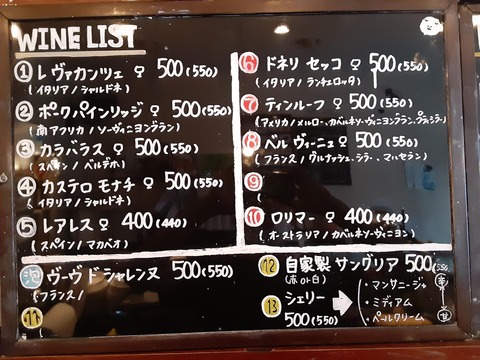 WINE LIST
① レ ヴァカンツェ ♀ 500(550)
(イタリア/シャルドネ)
② ポークパインリッジ ♀ 500(550)
(南アフリカ/ソーヴィニヨンブラン)
③ カラバラス ♀ 500(550)
(スペイン/ベルデホ)
④ カステロ モナチ ♀ 500(550)
(イタリア/シャルドネ)
⑤ レアレス ♀ 400(440)
(スペイン/マカベオ)
泡 ヴーヴ ド シャレンヌ 500(550)
(フランス/
11
⑥ ドネリ セッコ ♀ 500(550)
(イタリア/ランチェロッタ)
⑦ ティンルーフ ♀ 500(550)
(アメリカ/メルロー、カベルネソーヴィニヨンブラン、プティシラー)
⑧ ベル ヴィーニュ ♀ 500(550)
(フランス/グルナッシュ・シラー、マルセラン)
⑨
(
⑩ ロリマー ♀ 400(440)
(オーストラリア/カベルネソーヴィニヨン)
12 自家製 サングリア 500(550)
(赤or白)
13 シェリー
500(550)
・マンサニージャ
・ミディアム
・ペールクリーム
辛
甘